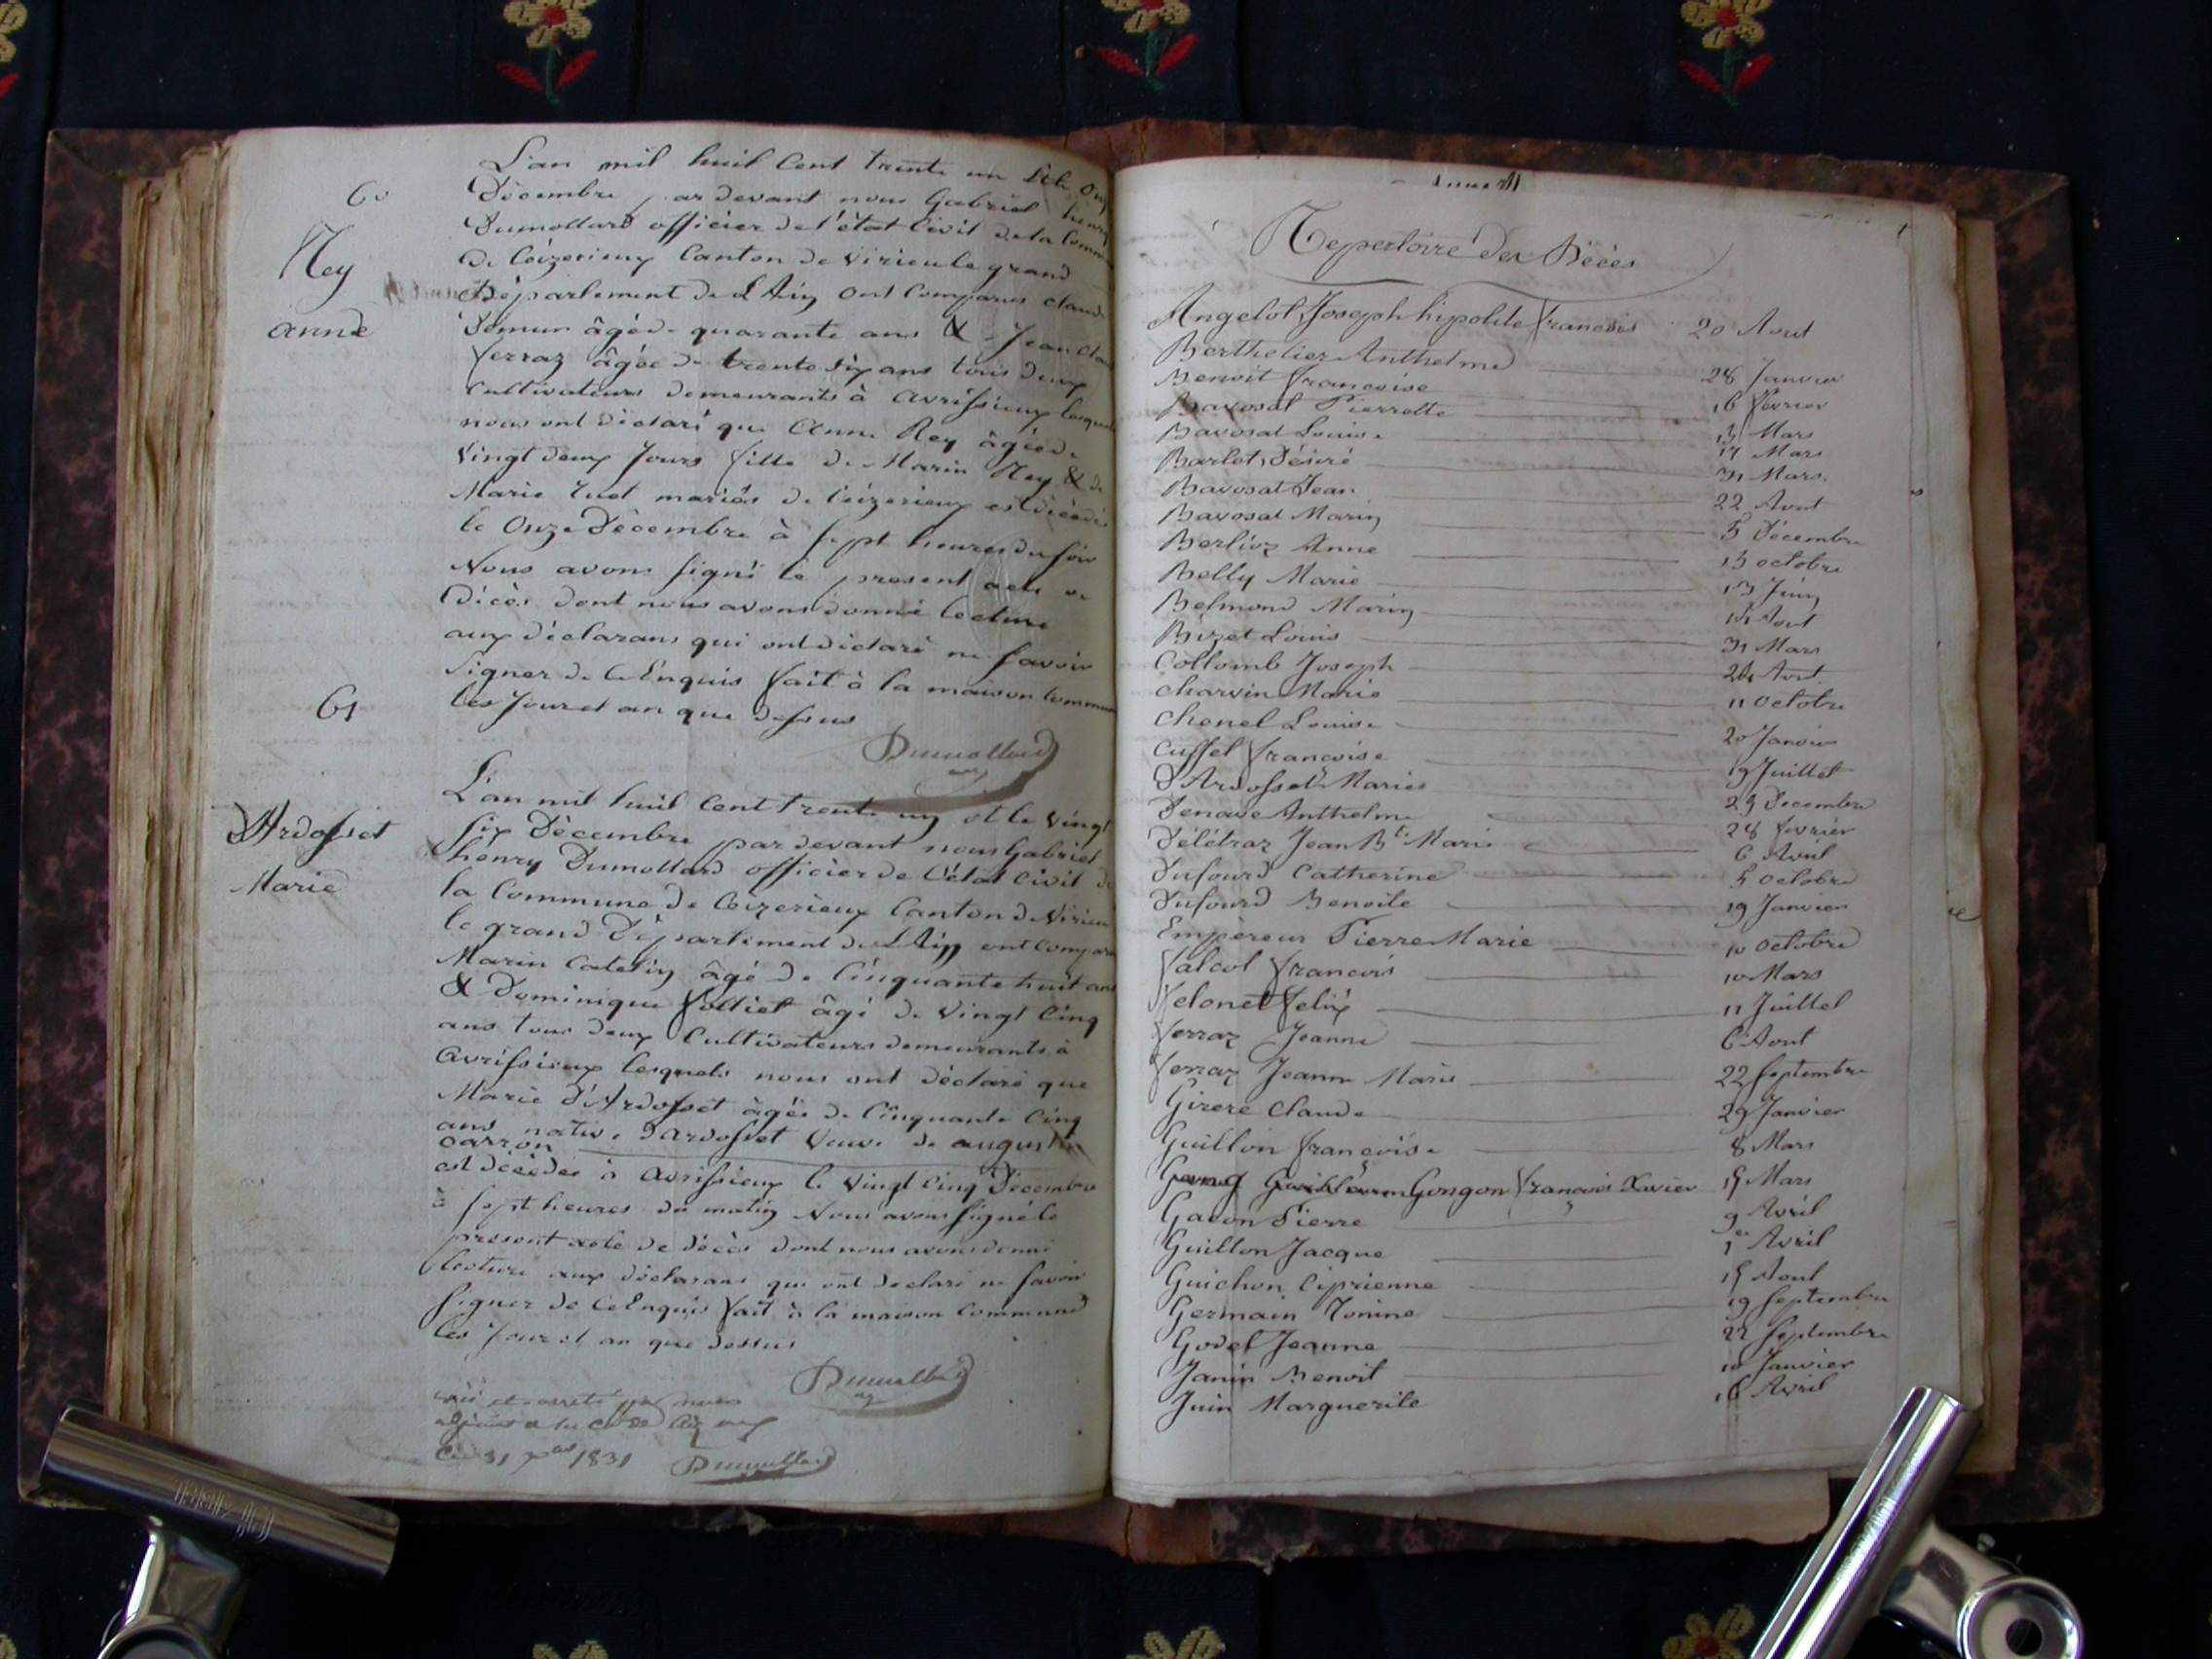 60
Rey
anne
L'an mil huit Cent trente un & le
Décembre par devant nous Gabriel henry
Dumollard officier de l'état Civil de la Comm
de Ceizerieux Canton de Virieu le grand
Département de L'Ain Ont Comparus claude
âgé de quarante ans & Jean
ferraz âgée de trente six ans tous deux
Cultivateurs demeurants à avrissieux lesquels
nous ont déclaré que Anne Rey âgée de
Vingt deux Jours fille de Marin Rey & de
Marie mariés de Ceizerieux est décédée
le Onze Décembre à sept heures du soir
Nous avons signé le present acte de
Décès dont nous avons donné lecture
aux déclarans qui ont déclaré ne savoir
signer de ce Enquis fait à la maison Commune
les Jour et an que dessus
Dumollard
61
D'Ardosset
Marie
L'an mil huit Cent trente un et le Vingt
six Décembre par devant nous Gabriel
henry Dumollard officier de L'état Civil de
la Commune de Ceizerieux Canton de Virieu
le grand Département de L'Ain ont Compar
Marin Catelin âgé de Cinquante huit ans
& Dominique âgé de Vingt Cinq
ans tous deux Cultivateurs demeurants à
avrissieux lesquels nous ont déclaré que
Marie D'Ardosset âgée de Cinquante Cinq
ans native D'ardosset Veuve de augustin
carron
est décédée à avrissieux le Vingt Cinq Décembre
à sept heures du matin Nous avons signé le
present acte de décès dont nous avons donné
lecture aux déclarans qui ont déclaré ne savoir
signer de Ce Enquis fait à la maison Commune
les Jour et an que dessus
Dumollard
et arrêté par nous
adjoint a la
Ce 31 1831 Dumollard
Repertoire des Décès
Angelot Joseph hipolite francois 20 Aout
Berthelier Anthelme 28 Janvier
Benoit francoise 16 fevrier
Bavosat Pierrette 13 Mars
Bavosat Louise 17 Mars
Barlet Désiré 31 Mars
Bavosat Jean 22 Aout
Bavosat Marin 5 Décembre
Berlioz Anne 13 octobre
Belly Marie 13 Juin
Belmond Marin Aout
Bizet Louis 31 Mars
Collomb Joseph Aout
Charvin Marie 11 Octobre
Chenel Louise 20 Janvier
Cuffel francoise 19 Juillet
D'Ardosset Marie 25 Decembre
Denave Anthelme 28 fevrier
Délétraz Jean Bte Marie 6 Avril
Dufourd Catherine 5 octobre
Dufourd Benoite 19 Janvier
Empereur Pierre Marie 10 octobre
falcol francois 10 Mars
felonet felix 11 Juillet
ferraz Jeanne 6 Aout
ferraz Jeanne Marie 22 septembre
Girere Claude 29 Janvier
Guillon francoise 8 Mars
Gongon francois Xavier 15 Mars
Gavon Pierre 9 Avril
Guillon Jacque 1er Avril
Guichon Ciprienne 15 Aout
Germain Tonine 19 septembre
Godet Jeanne 22 septembre
Janin Benoit 10 Janvier
Juin Marguerite 16 Avril